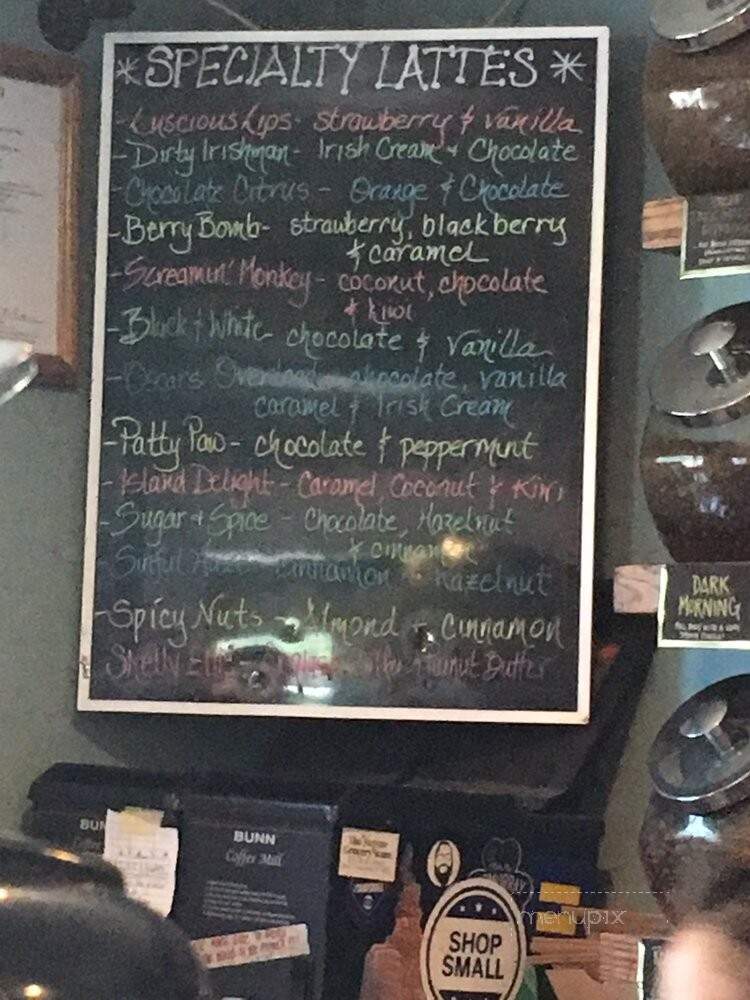 * SPECIALTY LATTES *
- Luscious Lips - strawberry & vanilla
- Dirty Irishman - Irish Cream + Chocolate
- Chocolate Citrus - Orange & Chocolate
- Berry Bomb - strawberry, blackberry
& caramel
- Screamin' Monkey - coconut, chocolate
& kiwi
- Black & White - chocolate & vanilla
- Oscars Overload - chocolate, vanilla
caramel & Irish Cream
- Patty Paw - chocolate & peppermint
- Island Delight - Caramel, Coconut & Kiwi
- Sugar + Spice - Chocolate, Hazelnut
& cinnamon
- Sinful cinnamon hazelnut
- Spicy Nuts - Almond + cinnamon
Butter
DARK
MORNING
BUNN
Coffee Mill
SHOP
SMALL
menupix